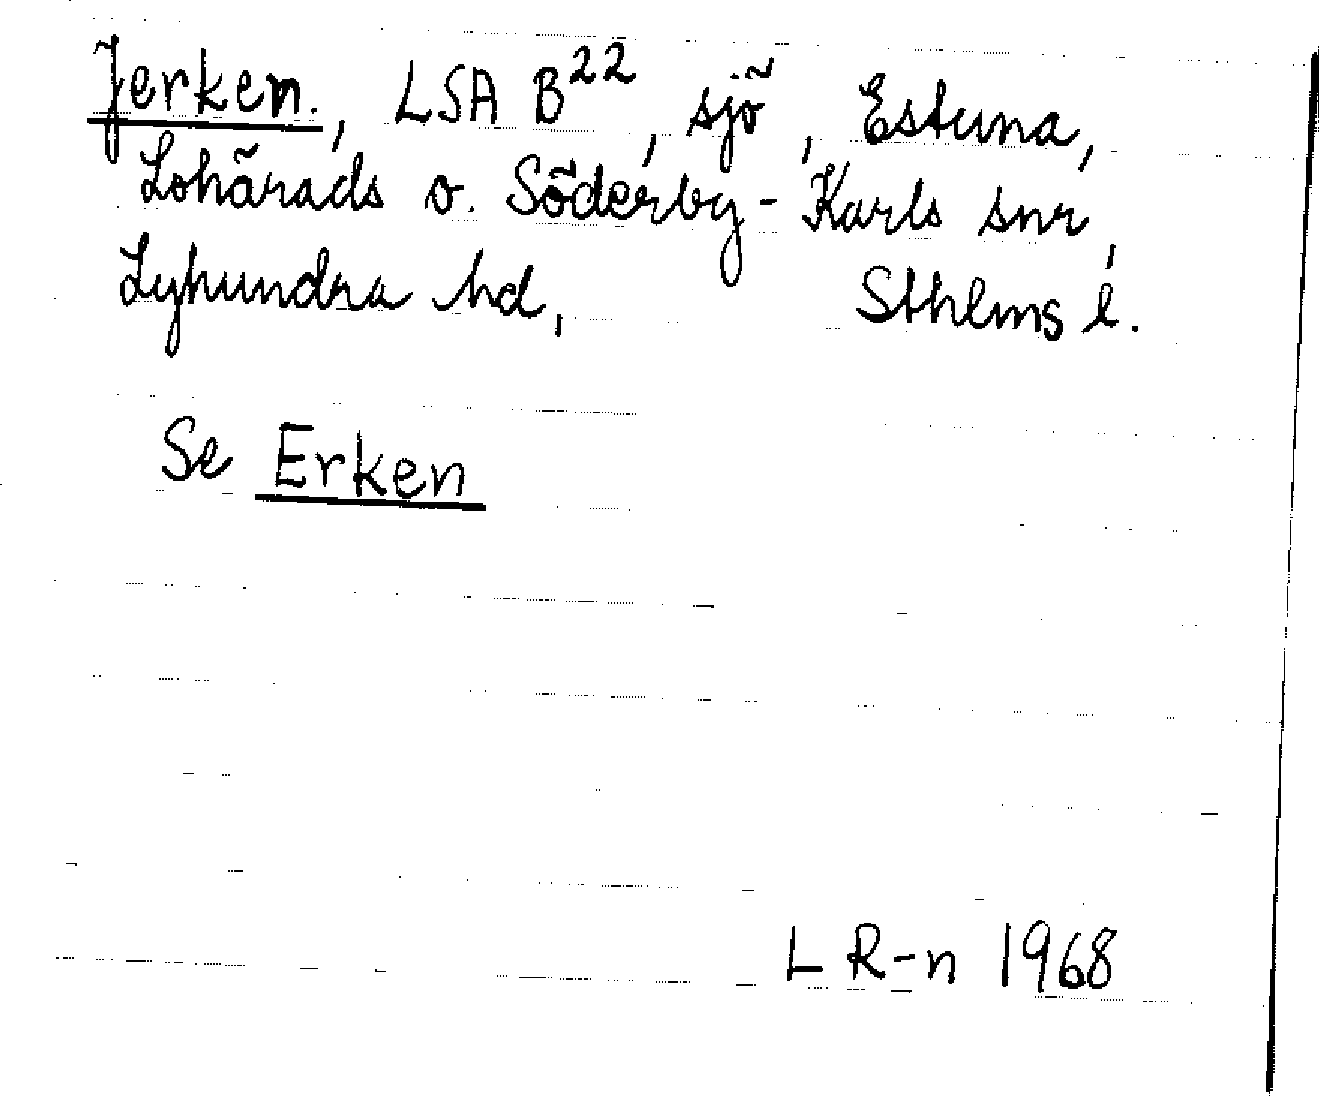 Jerken., LSA B²², sjö, Estuna,
Lohärads o. Söderby-Karls snr,
Lyhundra hd, Sthlms l.
Se Erken
L R-n 1968